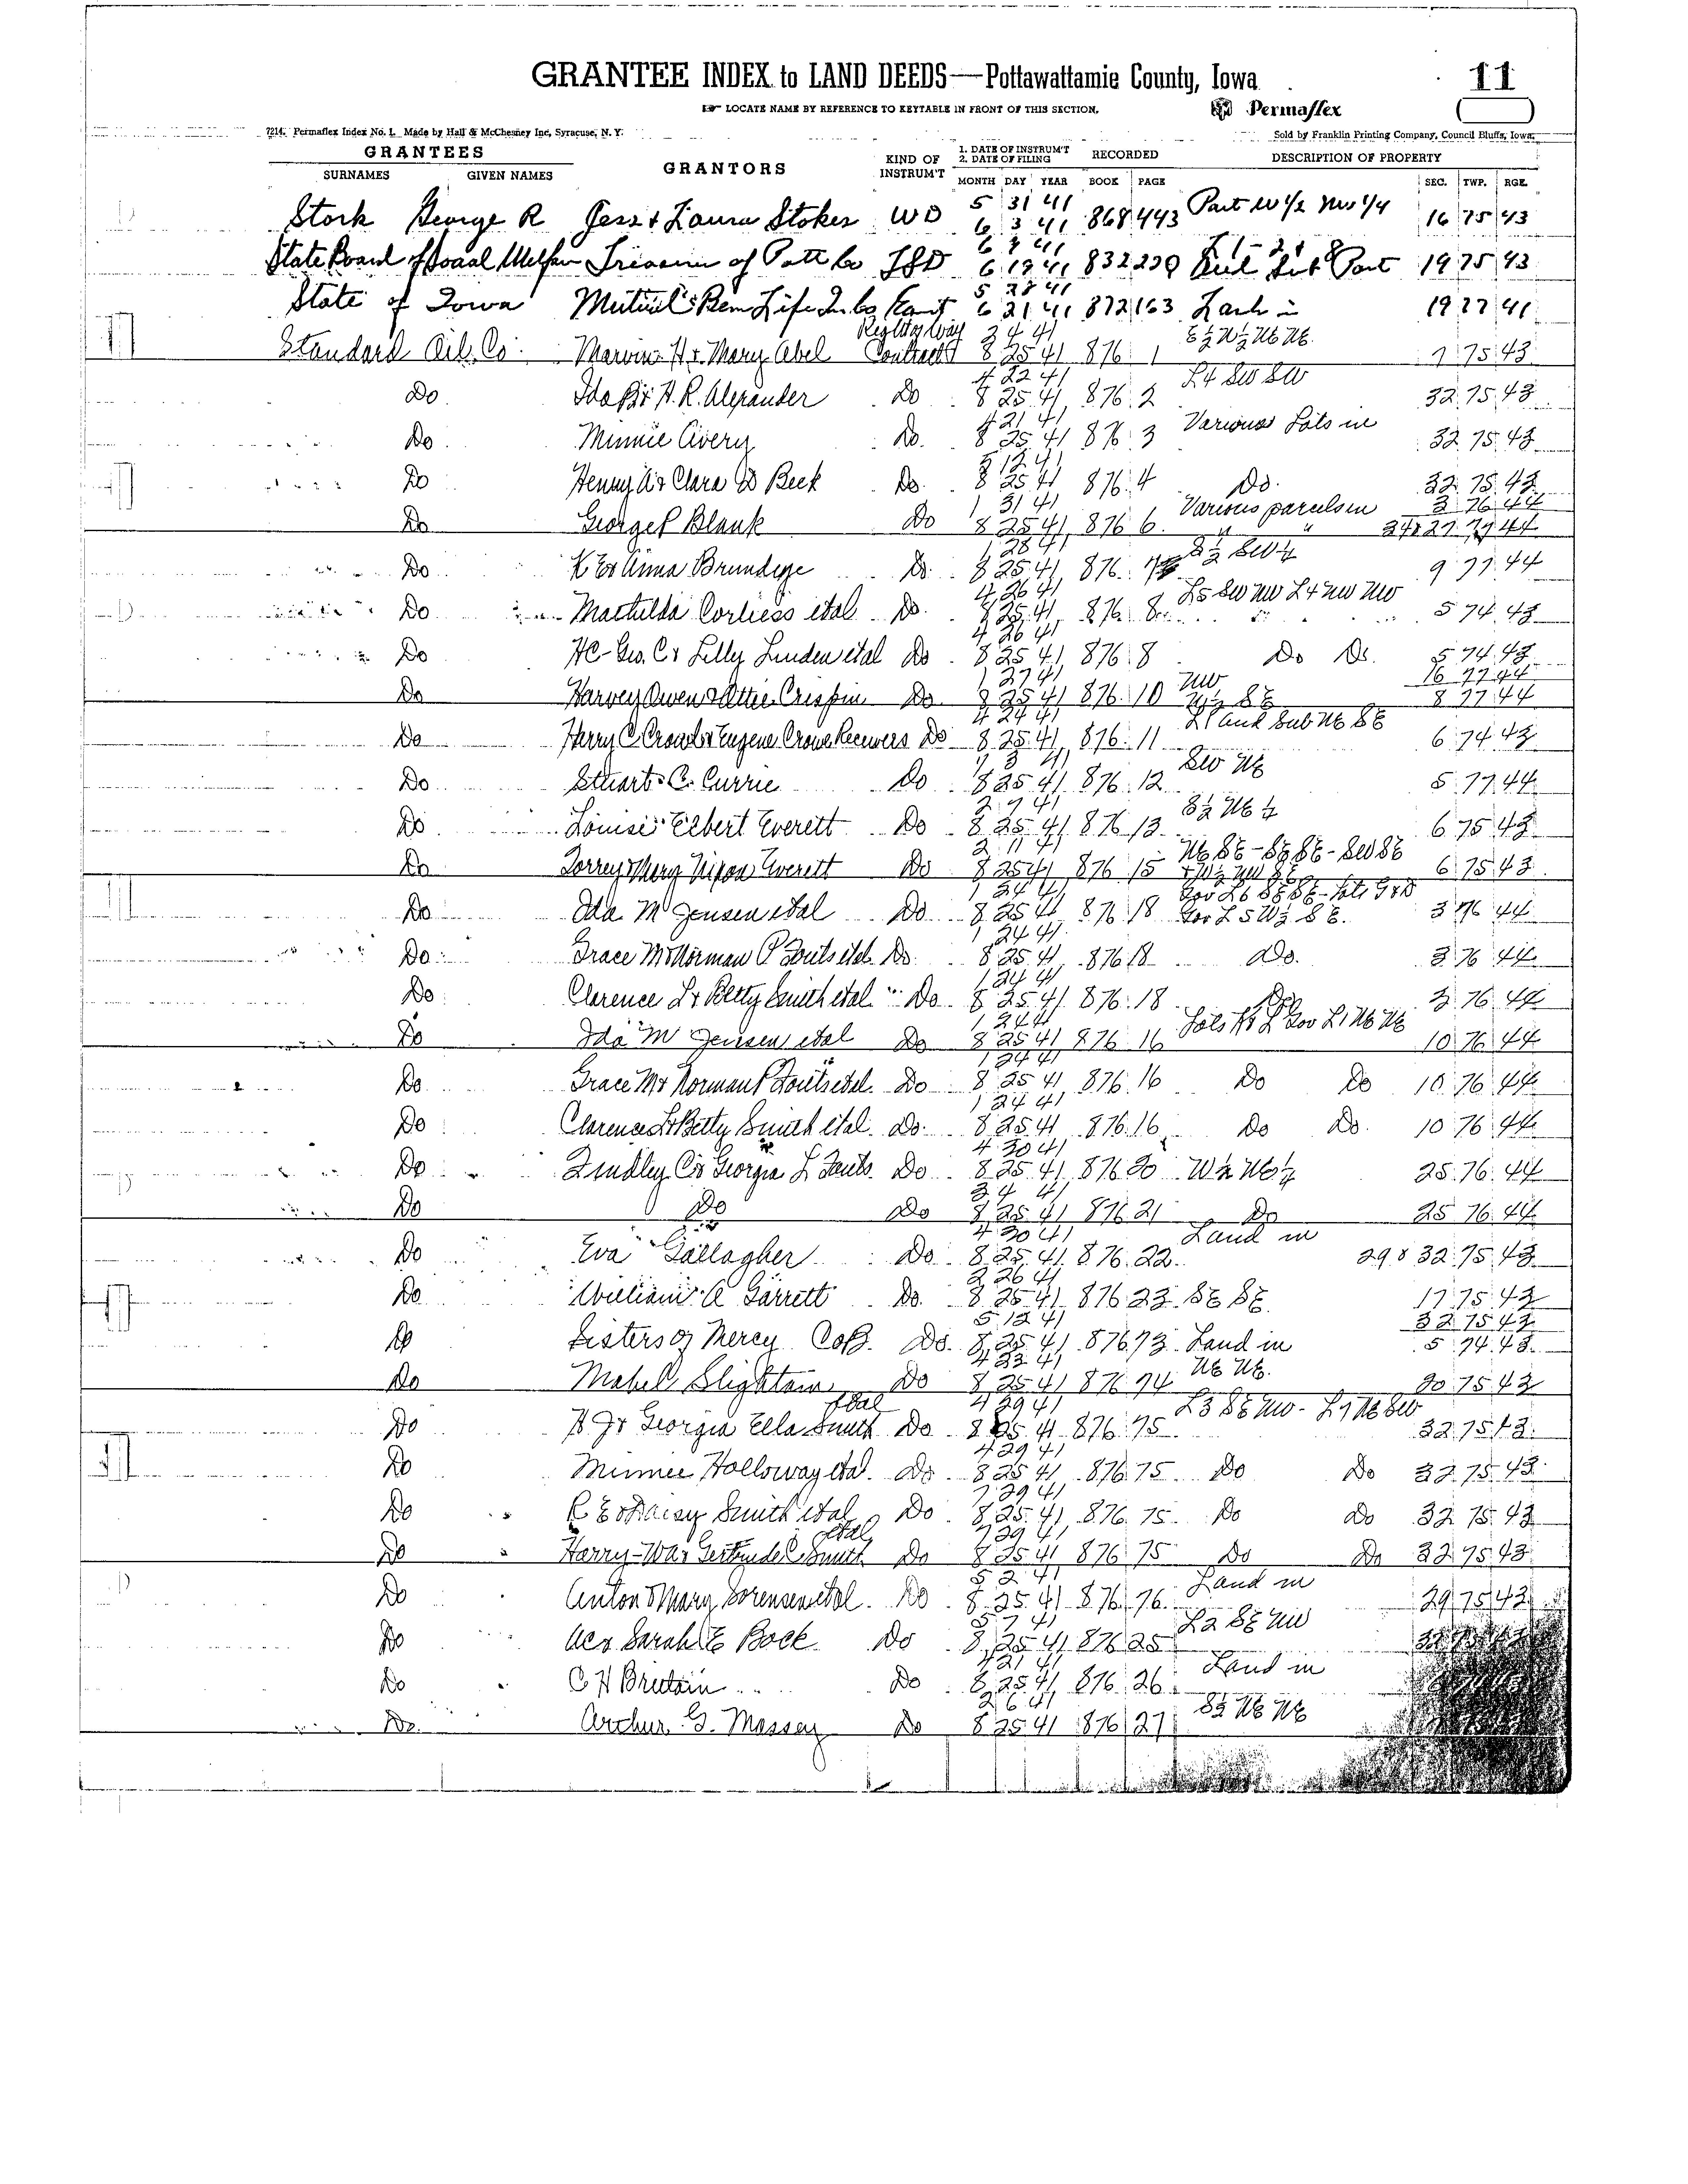 GRANTEE INDEX to LAND DEEDS—Pottawattamie County, Iowa
11
☞ LOCATE NAME BY REFERENCE TO KEYTABLE IN FRONT OF THIS SECTION.
Permaflex
7214. Permaflex Index No. 1. Made by Hall & McChesney Inc, Syracuse, N. Y.
Sold by Franklin Printing Company, Council Bluffs, Iowa.
GRANTEES GRANTORS KIND OF INSTRUM'T 1. DATE OF INSTRUM'T 2. DATE OF FILING RECORDED DESCRIPTION OF PROPERTY
SURNAMES GIVEN NAMES MONTH DAY YEAR BOOK PAGE SEC. TWP. RGE.
5 31 41 Part W 1/2 NW 1/4
Stork George R Jess & Laura Stokes WD 6 3 41 868 443 16 75 43
State Board of Social Welfare of Pott Co 41 832 Part 19 75 43
5 28 41
State of Iowa Mutual Ben Life In Co 6 21 41 872 163 in 19 77 41
Right of Way 3 4 41 E½ W½ NE NE
Standard Oil Co. Marvin H & Mary Abel Contract 8 25 41 876 1 7 75 43
4 22 41 L4 SW SW
Do H. R. Alexander Do 8 25 41 876 2 32 75 43
4 21 41 Various Lots in
Do Minnie Avery Do. 8 25 41 876 3 32 75 43
12 41
Do Henry A & Clara D Beck Do. 8 25 41 876 4 Do. 32 75 43
1 31 41 Various parcels in 3 76 44
Do George P Blank Do 8 25 41 876 6 " " 27 77 44
1 28 41 S½ SW¼
Do K E & Anna Brundige Do. 8 25 41 876 7 9 77 44
4 26 41 L5 SW NW L4 NW NW
Do Mathilda Corliess etal Do. 8 25 41 876 8 5 74 43
4 26 41
Do HC-Geo. C & Lilly Linden etal Do 8 25 41 876 8 Do Do. 5 74 43
1 27 41 NW 16 77 44
Do Harvey Owen & Ottie Crispin Do. 8 25 41 876 10 SE 8 77 44
4 24 41 L1 and Sub NE SE
Do Harry C. Crowl & Eugene Do 8 25 41 876 11 6 74 43
1 3 41 SW NE
Do Stuart C. Currie Do 8 25 41 876 12 5 77 44
2 7 41 S½ NE¼
Do Louise Elbert Everett Do 8 25 41 876 13 6 75 43
2 11 41 NE SE - SE SE - SW SE
Do Torrey & Mary Nixon Everett Do 8 25 41 876 15 6 75 43
1 24 41 Gov L6 SE SE - Lots
Do Ida M Jensen etal Do 8 25 41 876 18 Gov L 5 W½ SE. 3 76 44
1 24 41
Do Grace M & Norman P Fouts etal Do. 8 25 41 876 18 Do. 3 76 44
1 24 41
Do Clarence L & Betty Smith etal Do 8 25 41 876 18 Do 3 76 44
1 24 41 Lots K & L Gov L1 NE NE
Do Ida M Jensen etal Do 8 25 41 876 16 10 76 44
1 24 41
Do Grace M & Norman P Fouts etal. Do 8 25 41 876 16 Do Do 10 76 44
1 24 41
Do Clarence L & Betty Smith etal. Do. 8 25 41 876 16 Do Do. 10 76 44
4 30 41
Do Lindley C & Georgia L Fouts. Do 8 25 41 876 20 W½ NE¼ 25 76 44
3 4 41
Do Do Do 8 25 41 876 21 Do 25 76 44
4 30 41 Land in
Do Eva Gallagher Do 8 25 41 876 22 29 & 32 75 43
2 26 41
Do William A Garrett Do. 8 25 41 876 23 SE SE 17 75 43
5 12 41 32 75 43
Do Sisters of Mercy Do. 8 25 41 876 73 Land in 5 74 43
4 23 41 NE NE
Do Mabel Slightam Do 8 25 41 876 74 20 75 43
etal 4 29 41 L3 SE NW - L7 NE SW
Do Georgia Ella Smith Do 8 25 41 876 75 32 75 43
4 29 41
Do Minnie Holloway etal. Do 8 25 41 876 75 Do Do 32 75 43
29 41
Do R E & Daisy Smith etal Do 8 25 41 876 75 Do Do 32 75 43
etal 29 41
Do Harry W & Gertrude C Smith Do 8 25 41 876 75 Do Do 32 75 43
5 2 41 Land in
Do Anton & Mary Sorensen etal. Do 8 25 41 876 76 29 75 43
5 7 41 L2 SE NW
Do Sarah E Bock Do 8 25 41 876 25
4 21 41 Land in
Do C H Britain Do 8 25 41 876 26
2 6 41 S½ NE NE
Do Arthur G. Massey Do 8 25 41 876 27